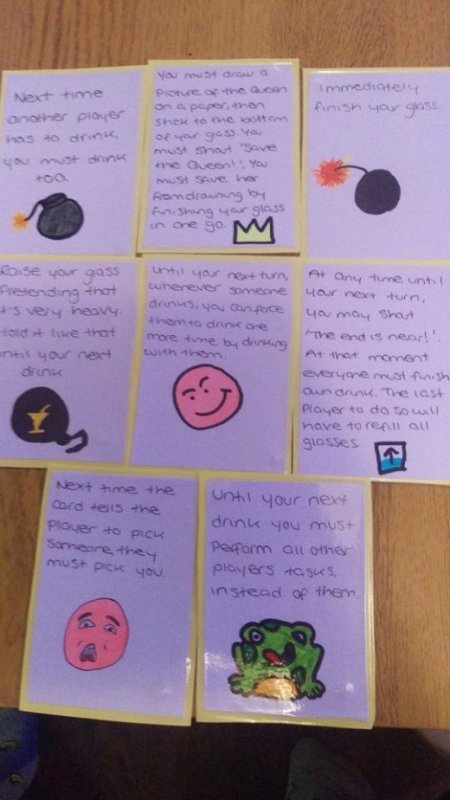 Next time
another player
has to drink,
you must drink
too.
You must draw a
Picture of the Queen
on a paper, then
stick to the bottom
of your glass. You
must shout 'Save
the Queen!'. You
must save her
from drowning by
finishing your glass
in one go.
Immediately
finish your glass.
Raise your glass
Pretending that
it's very heavy.
Hold it like that
until your next
drink.
Until your next turn,
whenever someone
drinks, you can force
them to drink one
more time by drinking
with them.
At any time until
your next turn,
you may shout
'The end is near!'.
At that moment
everyone must finish
own drink. The last
Player to do so will
have to refill all
glasses.
Next time the
card tells the
Player to pick
someone, they
must pick you.
Until your next
drink you must
Perform all other
players tasks,
instead of them.